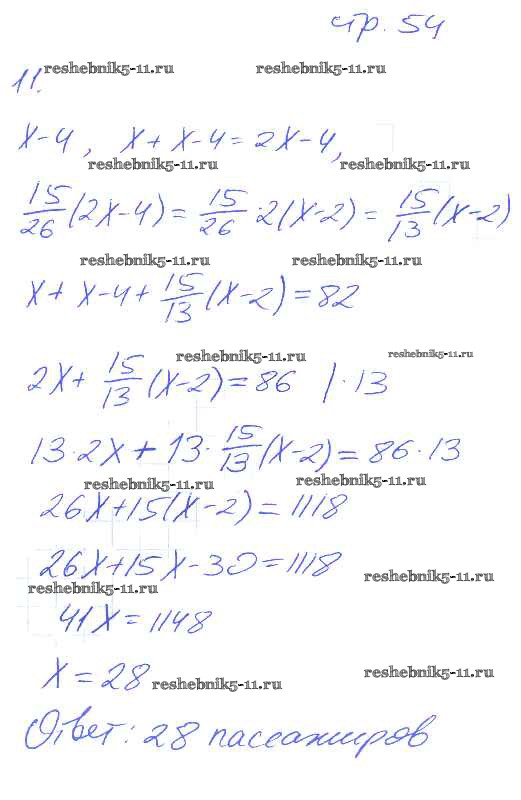 стр. 54
reshebnik5-11.ru reshebnik5-11.ru
11.
x-4, x+x-4=2x-4,
reshebnik5-11.ru reshebnik5-11.ru
15/26(2x-4)=15/26·2(x-2)=15/13(x-2)
reshebnik5-11.ru reshebnik5-11.ru
x+x-4+15/13(x-2)=82
reshebnik5-11.ru reshebnik5-11.ru
2x+15/13(x-2)=86 |·13
13·2x+13·15/13(x-2)=86·13
reshebnik5-11.ru reshebnik5-11.ru
26x+15(x-2)=1118
26x+15x-30=1118
reshebnik5-11.ru reshebnik5-11.ru
41x=1148
x=28
reshebnik5-11.ru reshebnik5-11.ru
Ответ: 28 пассажиров